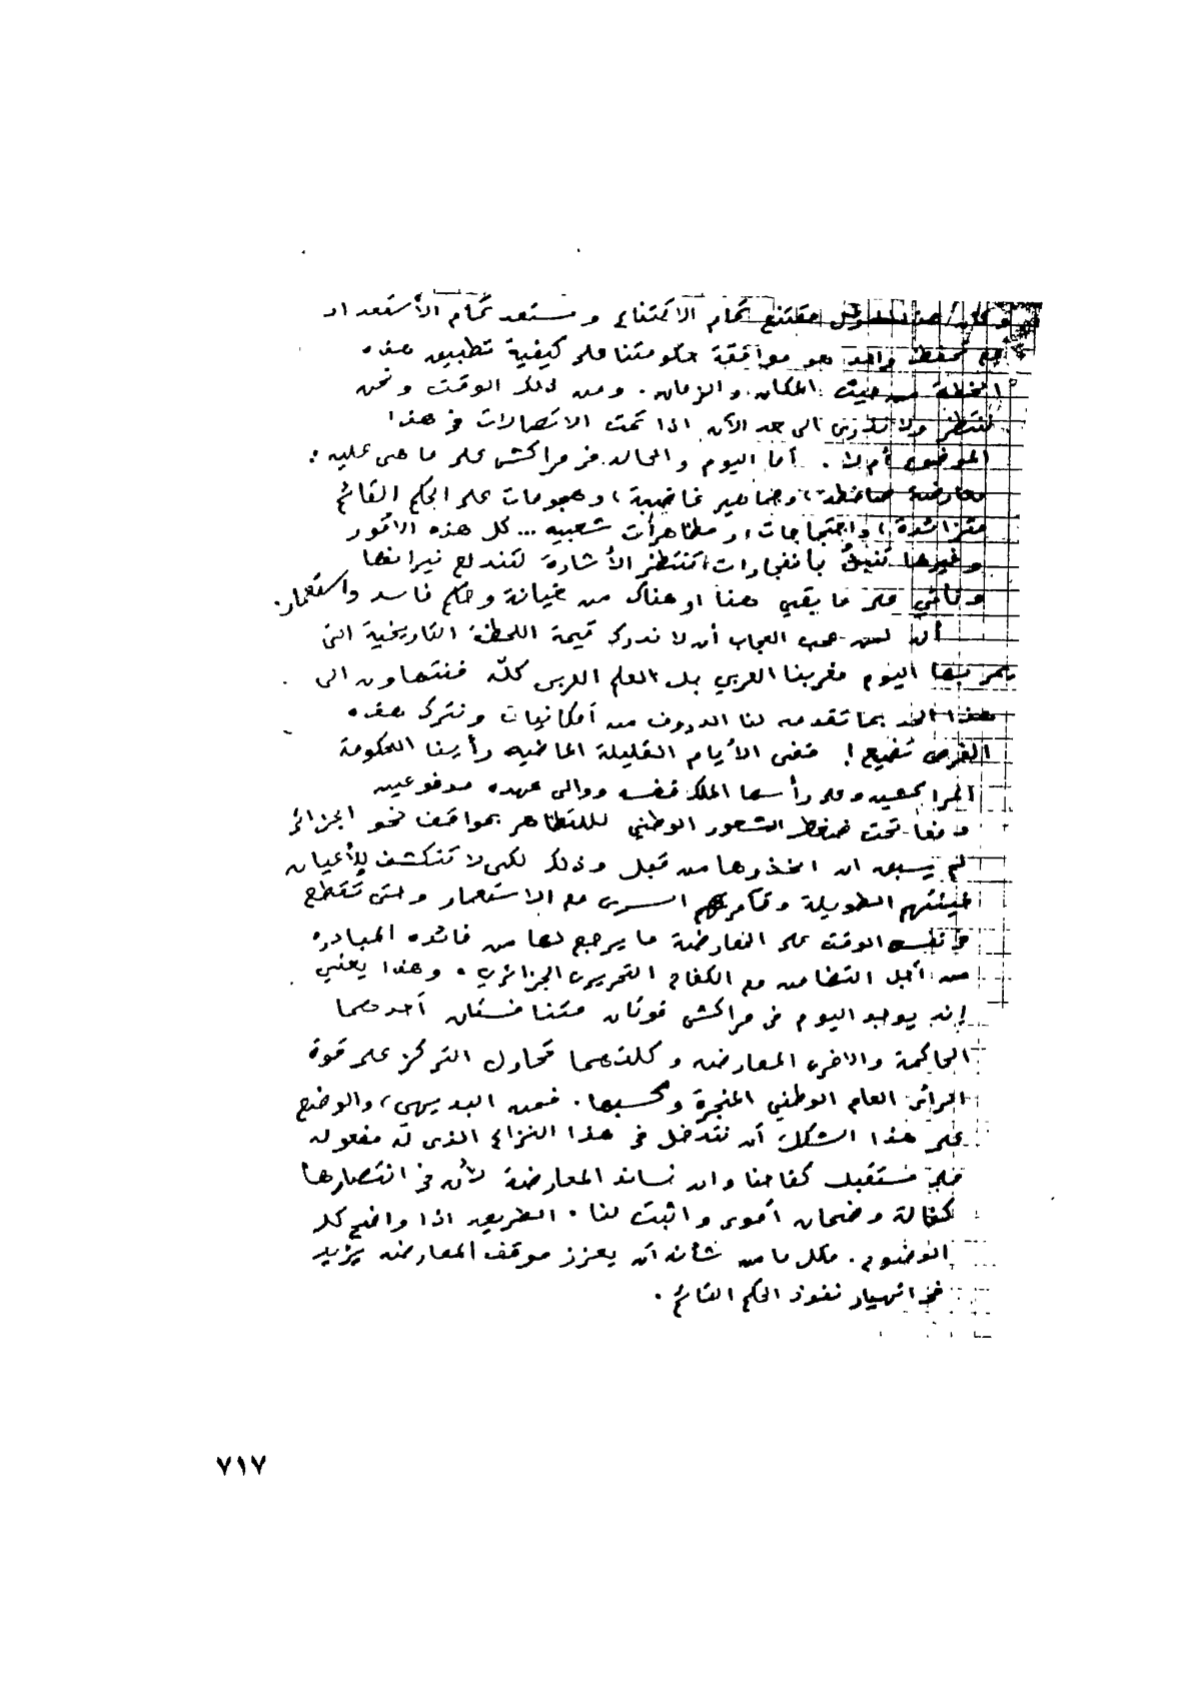 وكان هذا المسؤول مقتنع تمام الاقتناع ومستعد تمام الأستعداد
مع تحفظ واحد هو موافقة حكومتنا على كيفية تطبيق هذه
الخطة من حيث المكان والزمان. ومن ذلك الوقت ونحن
ننتظر ولا ندرى الى حد الآن اذا تمت الاتصالات فى هذا
الموضوع أم لا. أما اليوم والحالة فى مراكش على ما هى عليه:
معارضة ، وجماهير غاضبة، وهجومات على الحكم القائم
متزائدة، واحتجاجات، ومظاهرات شعبيه... كل هذه الأمور
وغيرها تنبئ بأنفجارات تنتظر الأشارة لتندلع نيرانها
وتأتي على ما بقي هنا او هناك من خيانة وحكم فاسد واستعمار.
أنه لمن عجب العجاب أن لا ندرك قيمة اللحظة التاريخية التى
يمر بها اليوم مغربنا العربي بل العلم العربى كلّه فنتهاون الى
هذا الحد بما تقدمه لنا الظروف من أمكانيات ونترك هذه
الفرص تضيع! ففى الأيام القليلة الماضيه رأينا الحكومة
المراكشيه وعلى رأسها الملك نفسه ووالى عهده مدفوعين
دفعا تحت ضغط الشعور الوطني لللتظاهر بمواقف نحو الجزائر
لم يسبق ان اتخذوها من قبل وذلك لكى لا تنكشف للأعيان
خيبتهم الطويلة وتآمرهم السرى مع الاستعمار وحتى تقطع
فى نفس الوقت على المعارضة ما يرجع لها من فائده المبادره
من أجل التضامن مع الكفاح التحريرى الجزائري. وهذا يعني
إنه يوجد اليوم فى مراكش قوتان متنافستان أحدهما
الحاكمة والاخرى المعارضه وكلتهما تحاول التركز على قوة
الرأى العام الوطني وكسبها. فمن البديهى، والوضع
على هذا الشكل أن نتدخل فى هذا النزاع الذى له مفعوله
على مستقبل كفاحنا وان نساند المعارضة لأن فى انتصارها
كفالة وضمان أقوى واثبت لنا. الطريق اذا واضح كل
الوضوح. فكل ما من شأنه أن يعزز موقف المعارضه يزيد
فى انهيار نفوذ الحكم القائم.
٧١٧